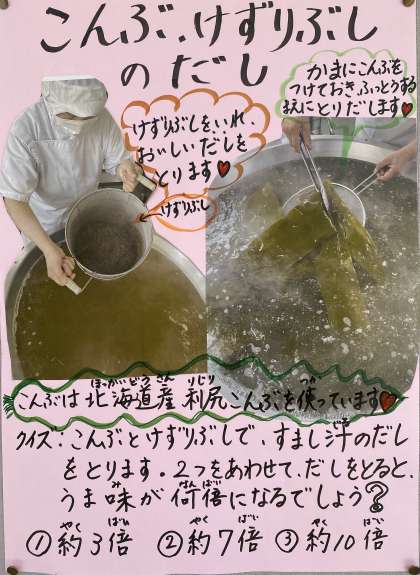 こんぶ、けずりぶし
のだし
かまにこんぶを
つけておき、ふっとうする
まえにとりだします♥
けずりぶしをいれ、
おいしいだしを
とります♥
けずりぶし
こんぶは北海道産 利尻こんぶを使っています♥
ほっかいどう さん りしり つか
クイズ：こんぶとけずりぶしで、すまし汁のだし
じる
をとります。2つをあわせて、だしをとると、
うま味が何倍になるでしょう？
み なん ばい
①約3倍 ②約7倍 ③約10倍
やく ばい やく ばい やく ばい